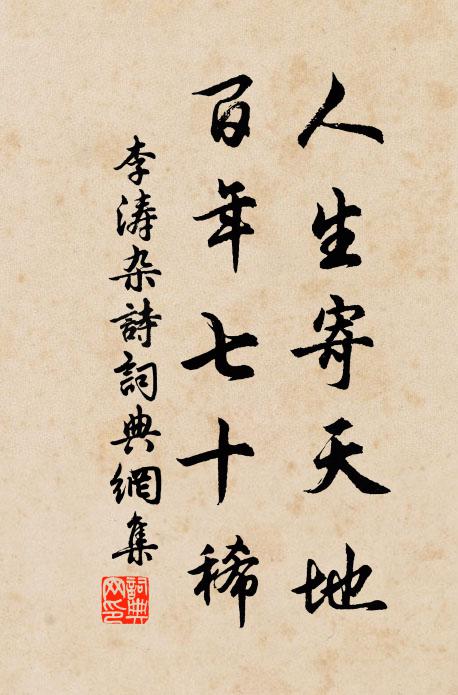 人生寄天地
百年七十稀
李涛杂詩詞典網集
詞典网印